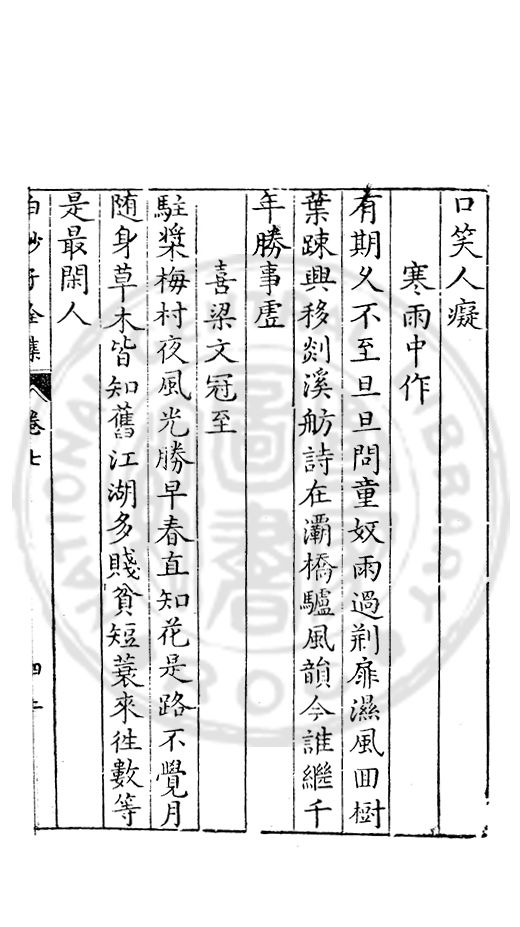 口笑人癡
寒雨中作
有期乆不至旦旦問童奴雨過荆扉濕風囬樹
葉踈興移剡溪舫詩在灞橋驢風韻今誰繼千
年勝事虛
喜梁文冠至
駐槳梅村夜風光勝早春直知花是路不覺月
随身草木皆知舊江湖多賤貧短蓑來徃數等
是最閑人
白沙子全集
卷七